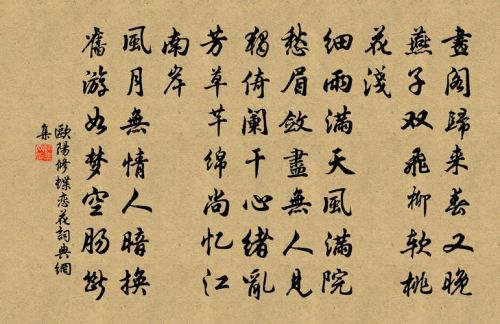 畫閣歸来春又晚
燕子双飛柳软桃
花淺
细雨满天風满院
愁眉敛盡無人見
独倚阑干心绪亂
芳草芊绵尚忆江
南岸
風月無情人暗換
舊游如梦空肠断
歐陽修蝶恋花詞典網
集